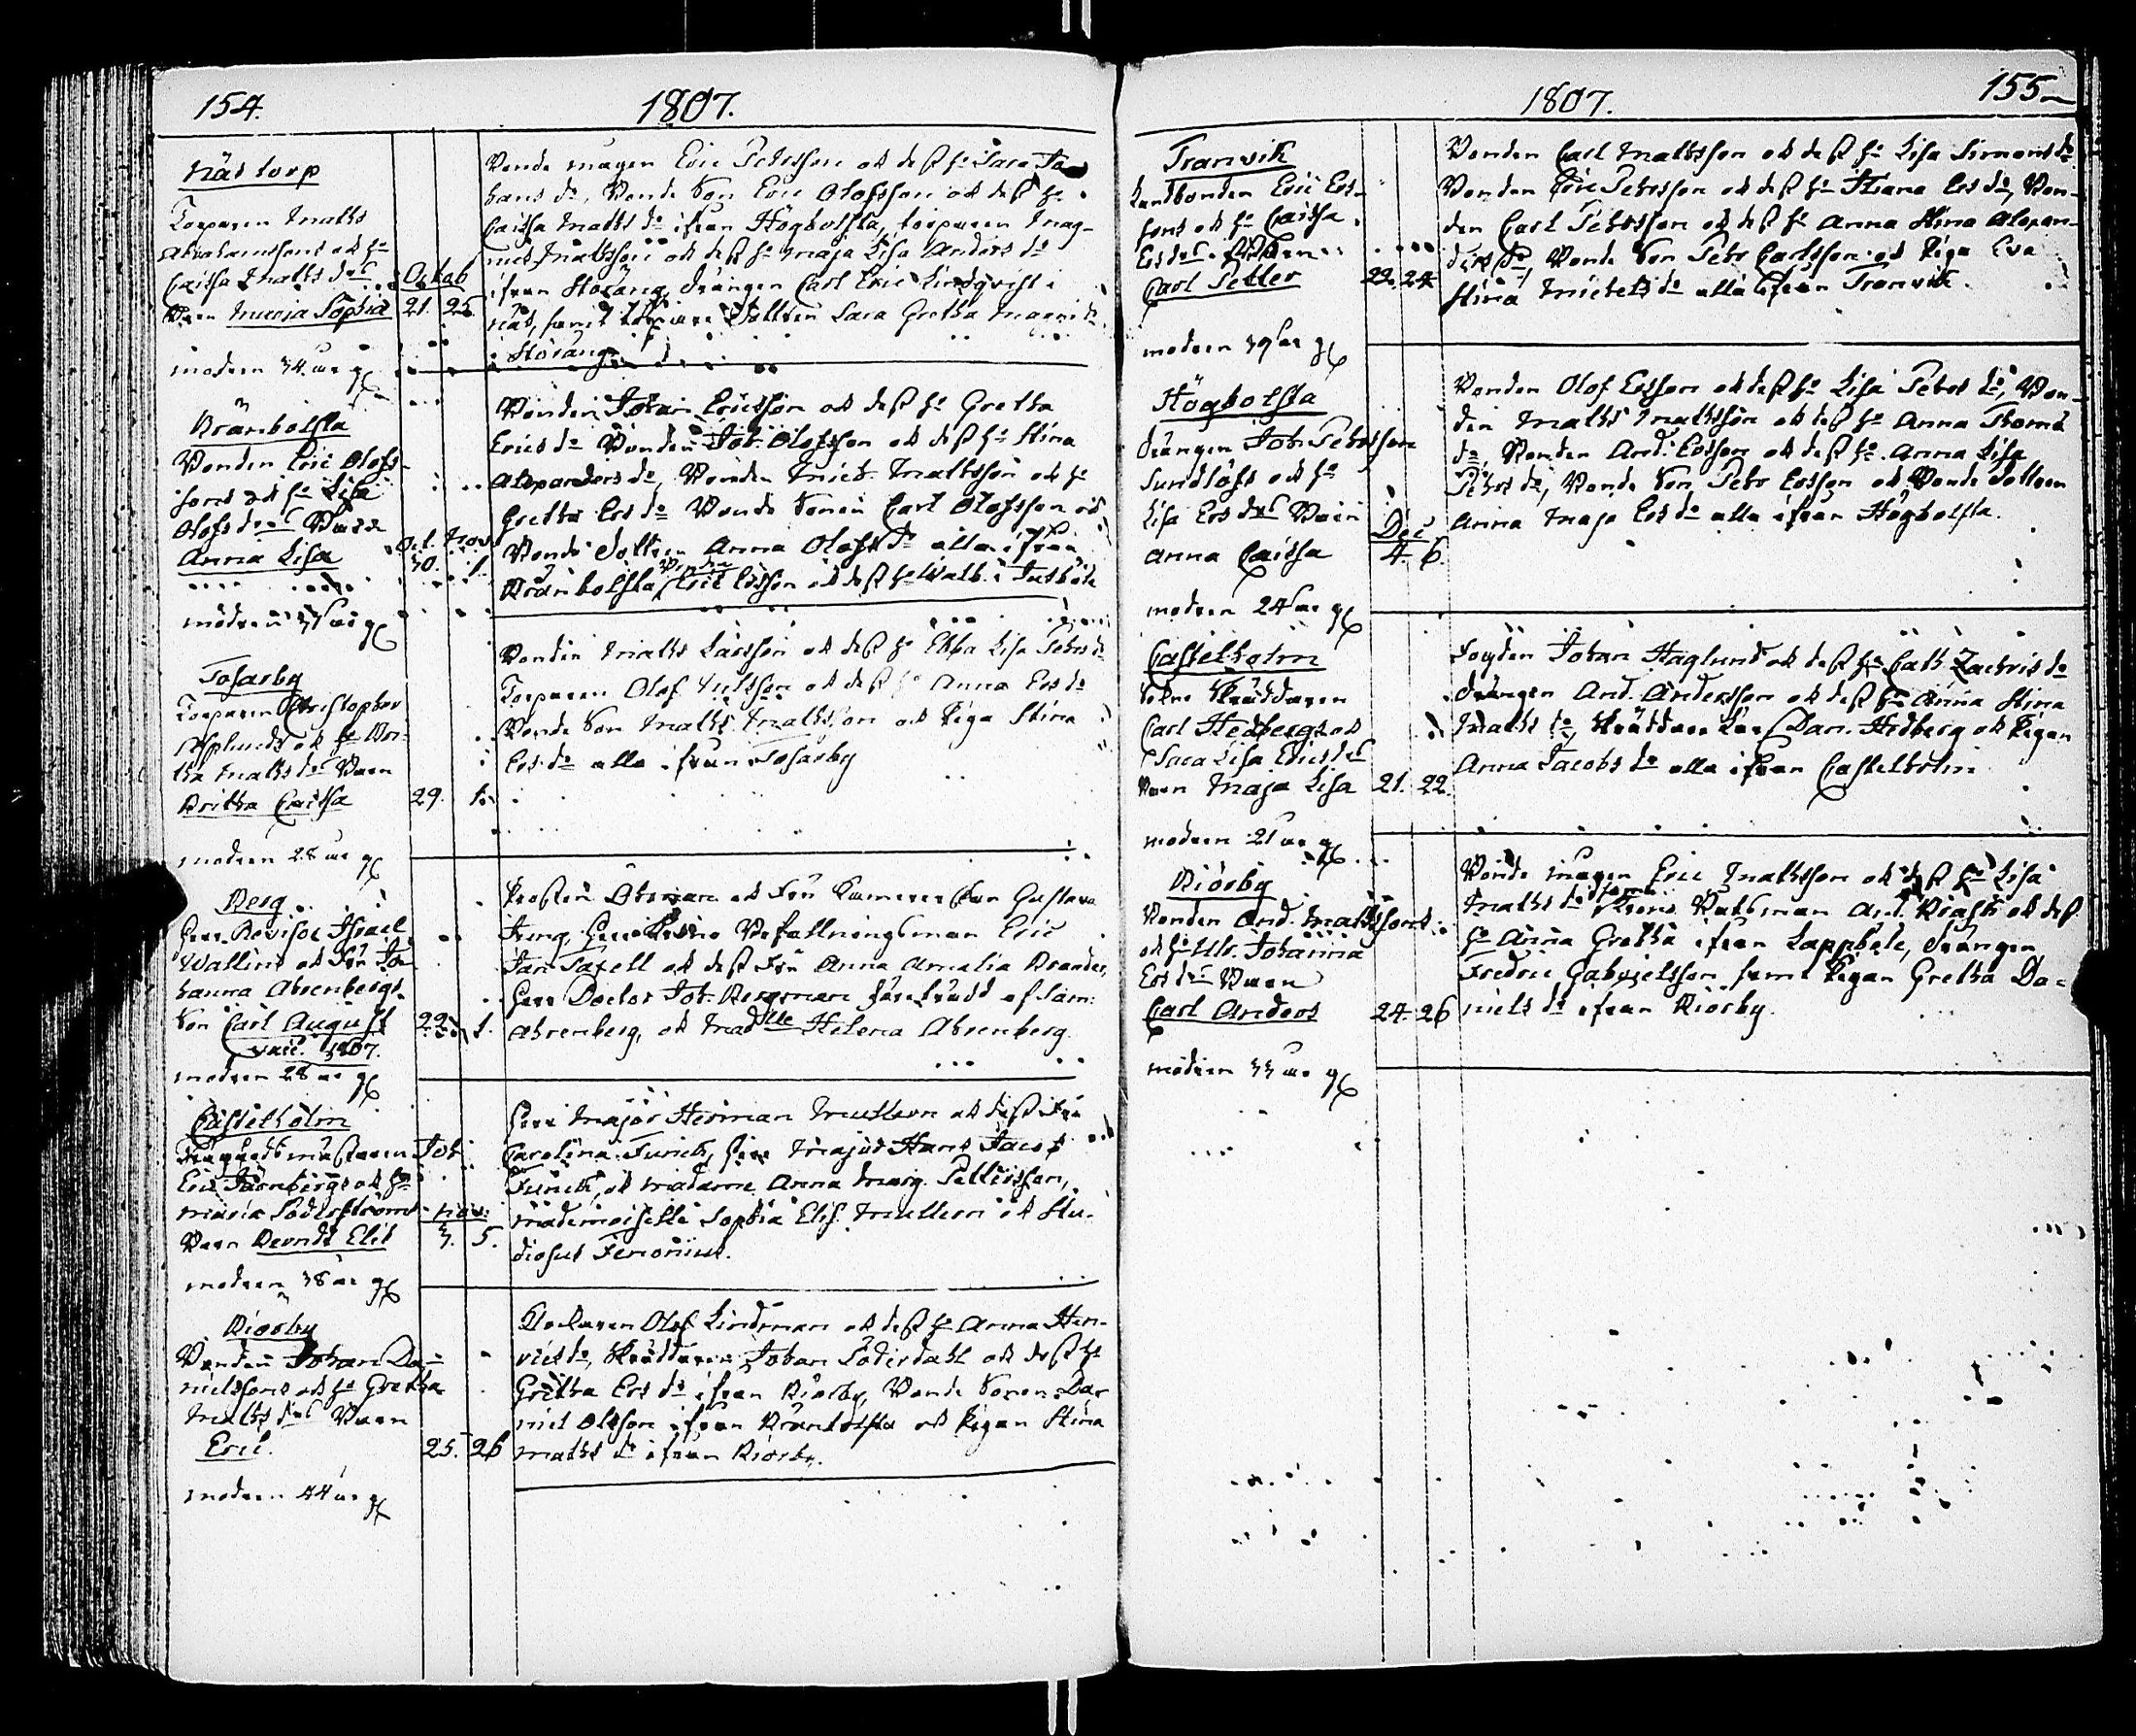 154.
1807.
Näs torp
Torparen Matts
Abrahamsons och h:
Caisa Matts d:s
Barn Maria Sophia
Octob
21. 25.
modren 34 år g
Bonde mågen Eric Petersson och dess h: Sara Jo-
hans d:r, Bonde Son Eric Olofsson och dess h:
Caisa Matts d:r ifrån Högbolsta, torparen Mag-
nus Mattsson och dess h: Maja Lisa Anders d:r
ifrån Storäng, drängen Carl Eric Lindqvist i
Näs, samt Dottren Sara Gretha Magni d:r
i Storäng
Bränbolsta
Bonden Eric Olofs-
sons och h: Lisa
Olofs d:rs Barn
Anna Lisa
Oct. Nov.
30. 1.
modren år g
Bonden Johan Ericsson och dess h: Gretha
Erics d:r Bonden Joh. Olofsson och dess h: Stina
Alexanders d:r, Bonden Mich. Mattsson och h:
Gretha Ers d:r Bonde Sonen Carl Olofsson och
Bonde Dottren Anna Olofs d:r alla ifrån
Bränbolsta, Bonden Eric Ersson och dess h: Walb. i
Tosarby
Torparen Christopher
Asplunds och h: Bri-
tha Matts d:rs Barn
Britha Caisa
29. 1.
modren 28 år g
Bonden Matts Larsson och dess h: Ebba Lisa Peters d:r
Torparen Olof och dess h: Anna Ers d:r
Bonde Son Matts Mattsson och Piga Stina
Ers d:r alla ifrån Tosarby
Berg
Herr Revisor Israel
Wallins och Fru Jo-
hanna Ahrenbergs
Son Carl August
vacc. 1807.
29. 1.
modren 28 år g
Prosten Öhman och Fru Kamererskan Gustava
Herr Krono Befallningsman Eric
Jan Taxell och dess Fru Anna Amalia Brander,
Herr Doctor Joh. Bergman företrädd af Sam:
Ahrenberg, och Mad:lle Helena Ahrenberg.
Castelholm
Joh.
Eric och h:
Maria Söderströms
Barn Berndt Elis
Nov.
3. 5.
modren 38 år g
Herr Major Herman Mullern och dess Fru
Carolina Furich, Herr Major Hans Jacob
Furich, och Madame Anna Marg. Pettersson,
Mademoiselle Sophia Elis. Mullern och Stu-
diosus
Biörby
Bonden Johan Da-
nielssons och h: Gretha
Matts d:rs Barn
Eric.
25. 26
modren 44 år g
Klockaren Olof Lindman och dess h: Anna Hen-
rics d:r, Skräddaren Johan Söderdahl och dess h:
Gretha Ers d:r ifrån Biörby, Bonde Sonen Da-
niel Olsson ifrån Bränbolsta och Pigan Stina
Matts d:r ifrån Biörby.
1807.
155
Tranvik
Landbonden Eric Ers-
sons och h: Caisa
Ers d:rs Barn
Carl Petter
22. 24.
modren 39 år g
Bonden Carl Mattsson och dess h: Lisa Simons d:r
Bonden Eric Petersson och dess h: Stina Ers d:r, Bon-
den Carl Petersson och dess h: Anna Stina Alexan-
ders d:r, Bonde Son Petr Carlsson och Piga Eva
Stina Michels d:r alla ifrån Tranvik.
Högbolsta
Drängen Joh. Petersson
Sundlöfs och h:
Lisa Ers d:rs Barn
Anna Caisa
Dec
4. 6.
modren 24 år g
Bonden Olof Ersson och dess h: Lisa Peters d:r, Bon-
den Matts Mattsson och dess h: Anna Thomas
d:r, Bonden And. Ersson och dess h: Anna Lisa
Peters d:r, Bonde Son Petr Ersson och Bonde Dottren
Anna Maja Ers d:r alla ifrån Högbolsta.
Castelholm
Skräddaren
Carl Hedbergs och
Sara Lisa Erics d:rs
Barn Maja Lisa
21. 22.
modren 21 år g
Fogden Johan Haglund och dess h: Cath. Zachris d:r
drängen And. Andersson och dess h: Anna Stina
Matts d:r, Skräddare Dan. Hedberg och Pigan
Anna Jacobs d:r alla ifrån Castelholm
Biörby
Bonden And. Mattssons
och h: Ulr. Johanna
Ers d:rs Barn
Carl Anders
24. 26
modren 33 år g
Bonde mågen Eric Mattsson och dess h: Lisa
Matts d:r samt Krono Båtsman And. Brask och dess
h: Anna Gretha ifrån Lappböle, Drängen
Fredric Gabrielsson samt Pigan Gretha Da-
niels d:r ifrån Biörby.